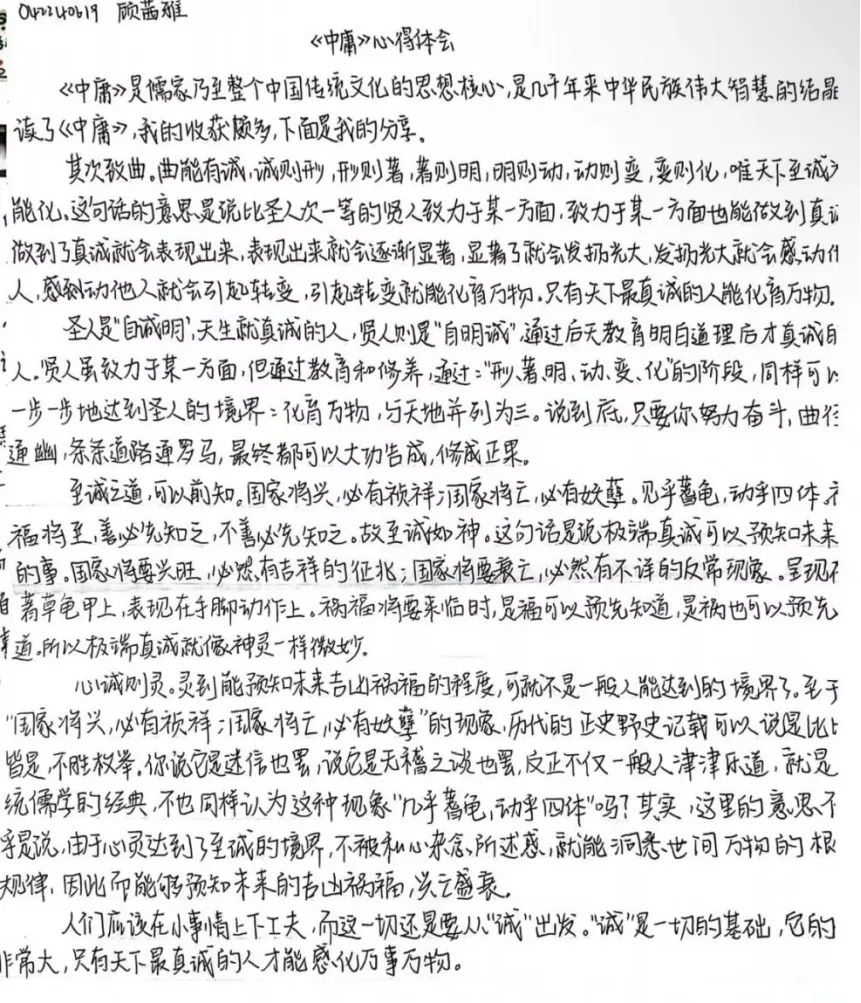 042240619 顾茜雅
《中庸》心得体会
《中庸》是儒家乃至整个中国传统文化的思想核心,是几千年来中华民族伟大智慧的结晶
读了《中庸》,我的收获颇多,下面是我的分享。
其次致曲。曲能有诚,诚则形,形则著,著则明,明则动,动则变,变则化,唯天下至诚为
能化。这句话的意思是说比圣人次一等的贤人致力于某一方面,致力于某一方面也能做到真诚
做到了真诚就会表现出来,表现出来就会逐渐显著,显著了就会发扬光大,发扬光大就会感动他
人,感动他人就会引起转变,引起转变就能化育万物。只有天下最真诚的人能化育万物。
圣人是"自诚明",天生就真诚的人,贤人则是"自明诚",通过后天教育明白道理后才真诚的
人。贤人虽致力于某一方面,但通过教育和修养,通过:"形、著、明、动、变、化"的阶段,同样可以
一步一步地达到圣人的境界:化育万物,与天地并列为三。说到底,只要你努力奋斗,曲径
通幽,条条道路通罗马,最终都可以大功告成,修成正果。
至诚之道,可以前知。国家将兴,必有祯祥;国家将亡,必有妖孽。见乎蓍龟,动乎四体。
福将至,善必先知之,不善必先知之。故至诚如神。这句话是说极端真诚可以预知未来
的事。国家将要兴旺,必然有吉祥的征兆;国家将要衰亡,必然有不详的反常现象。呈现在
蓍草龟甲上,表现在手脚动作上。祸福将要来临时,是福可以预先知道,是祸也可以预先
道。所以极端真诚就像神灵一样微妙。
心诚则灵。灵到能预知未来吉凶祸福的程度,可就不是一般人能达到的境界了。至于
"国家将兴,必有祯祥;国家将亡,必有妖孽"的现象,历代的正史野史记载可以说是比比
皆是,不胜枚举。你说它是迷信也罢,说它是无稽之谈也罢,反正不仅一般人津津乐道,就是
统儒学的经典,不也同样认为这种现象"几乎蓍龟,动乎四体"吗?其实,这里的意思不
乎是说,由于心灵达到了至诚的境界,不被私心杂念所迷惑,就能洞悉世间万物的根
规律,因此而能够预知未来的吉凶祸福,兴亡盛衰。
人们应该在小事情上下工夫,而这一切还是要从"诚"出发。"诚"是一切的基础,它的
非常大,只有天下最真诚的人才能感化万事万物。